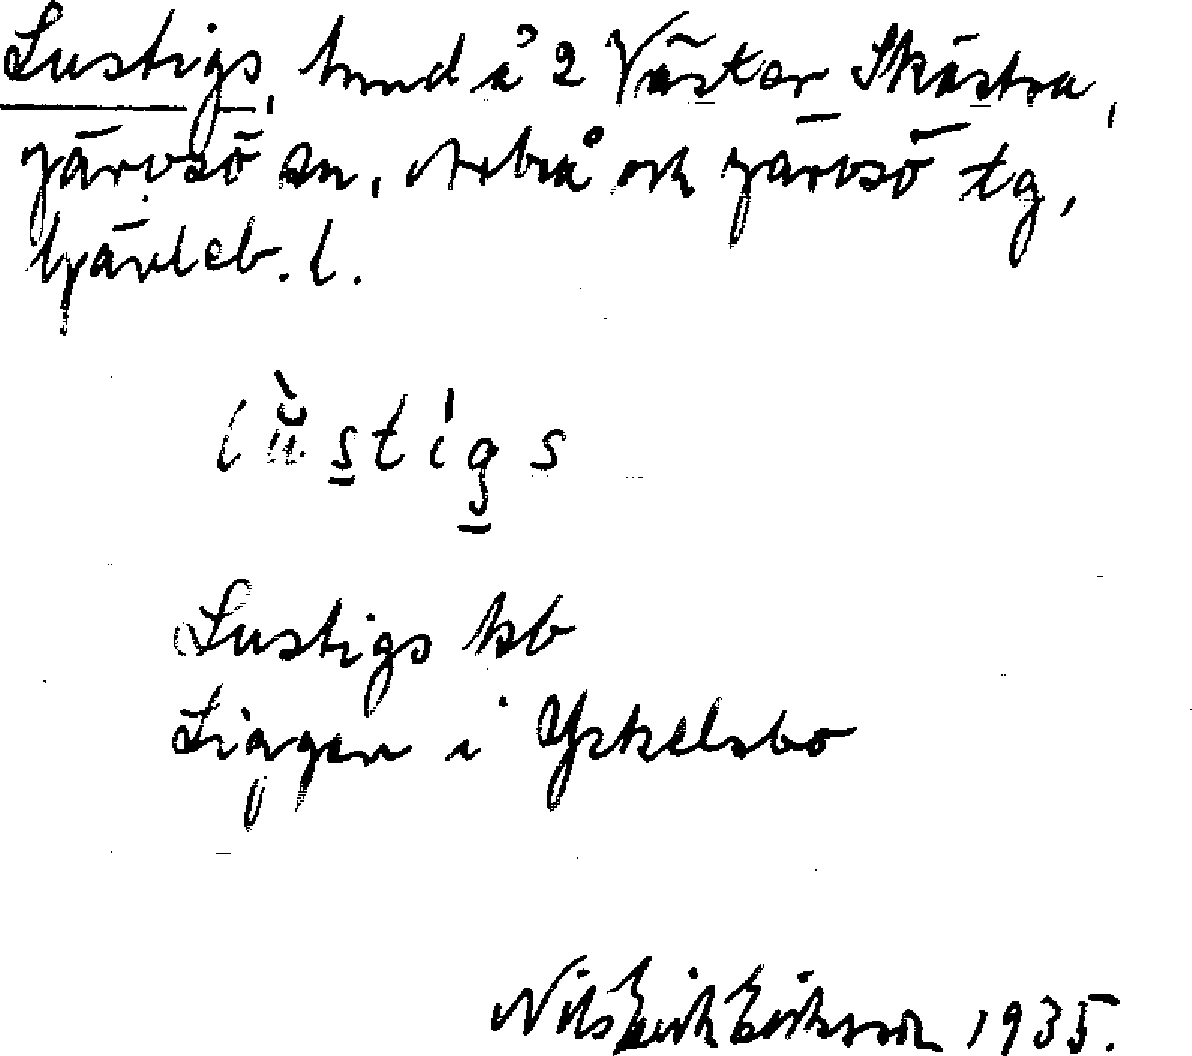 Lustigs, hmd å 2 Väster Skästra,
Järvsö sn, Arbrå och Järvsö tg,
Gävleb. l.
lùstigs
Lustigs hb
Liggen i Yskelsbo
Nils Erik Eriksson 1935.